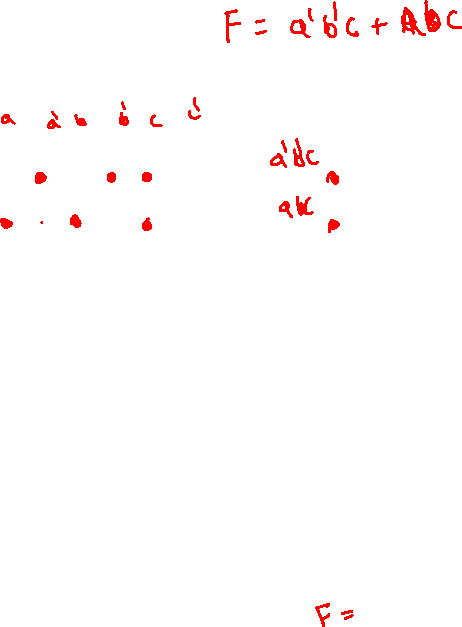 F = a'b'c + abc
a a' b b' c c'
a'b'c
abc
F =